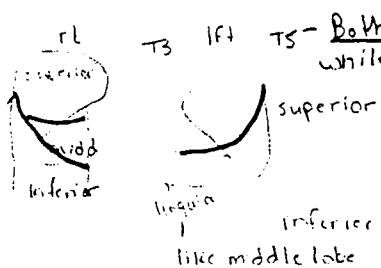 rt T3 lft T5 - Both
while
superior superior
midd
Inferior
lingula
Inferior
like middle lobe